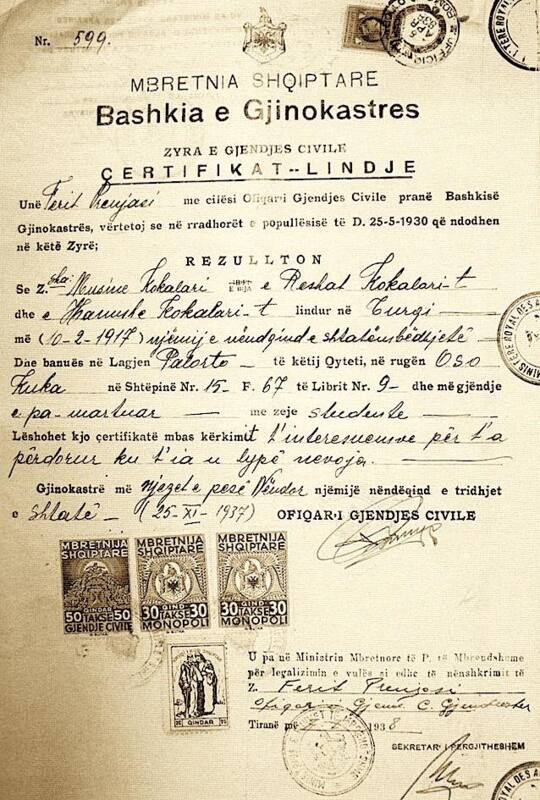 Nr. 599.
MBRETNIA SHQIPTARE
Bashkia e Gjinokastres
ZYRA E GJENDJES CIVILE
ÇERTIFIKAT--LINDJE
Unë Ferit Prenjasi me cilësi Ofiqari Gjendjes Civile pranë Bashkisë
Gjinokastrës, vërtetoj se në rradhorët e popullësisë të D. 25-5-1930 që ndodhen
në këtë Zyrë;
REZULLTON
Se Z.sha Musine Kokalari e Reshat Kokalari-t
dhe e Hanushe Kokalari-t lindur në Turqi
më (10-2-1917) njëmije nëndqind e shtatëmbëdhjetë
Dhe banuës në Lagjen Palorto të këtij Qyteti, në rugën Oso
Kuka në Shtëpinë Nr. 15- F. 67 të Librit Nr. 9- dhe më gjëndje
e pa-martuar me zeje studente
Lëshohet kjo çertifikatë mbas kërkimit t'interesuemve për t'a
përdorur ku t'ia u lypë nevoja.
Gjinokastrë më njezet e pesë Nëndor njëmijë nëndëqind e tridhjet
e shtatë (25-XI-1937) OFIQAR-I GJENDJES CIVILE
MBRETNIA SHQIPTARE
50 QINDAR 50
TAKSE
GJENDJE CIVILE
MBRETNIA SHQIPTARE
30 QIND 30
TAKSE
MONOPOLI
MBRETNIA SHQIPTARE
30 QIND 30
TAKSE
MONOPOLI
QINDAR
U pa në Ministrin Mbretnore të P. të Mbrendshme
për legalizimin e vulës si edhe të nënshkrimit të
Z. Ferit Prenjasi
Ofiqari Gjend. C. Gjinokaster
Tiranë më 1938
SEKRETAR I PERGJITHESHEM